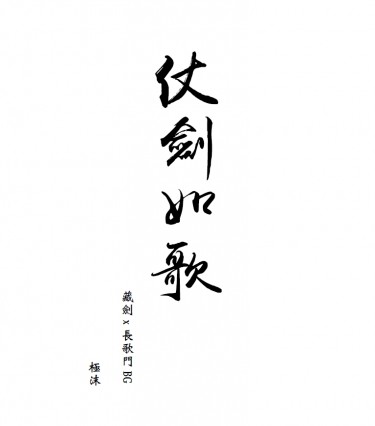 仗劍如歌
藏劍 x 長歌門 BG
極沫